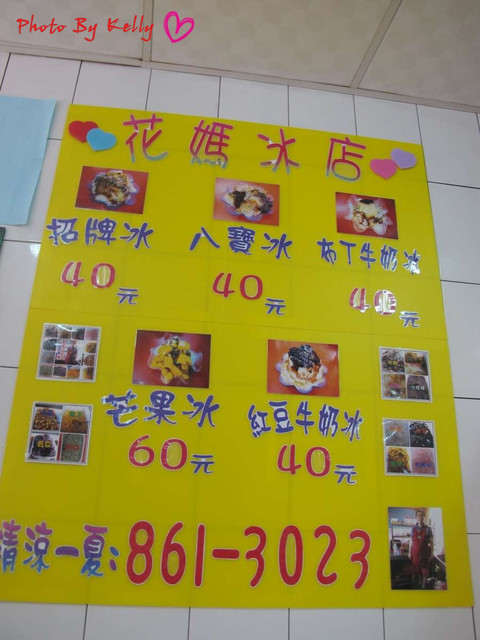 Photo By Kelly
花媽冰店
招牌冰 八寶冰 布丁牛奶冰
40元 40元 40元
芒果冰 紅豆牛奶冰
60元 40元
清涼一夏:861-3023